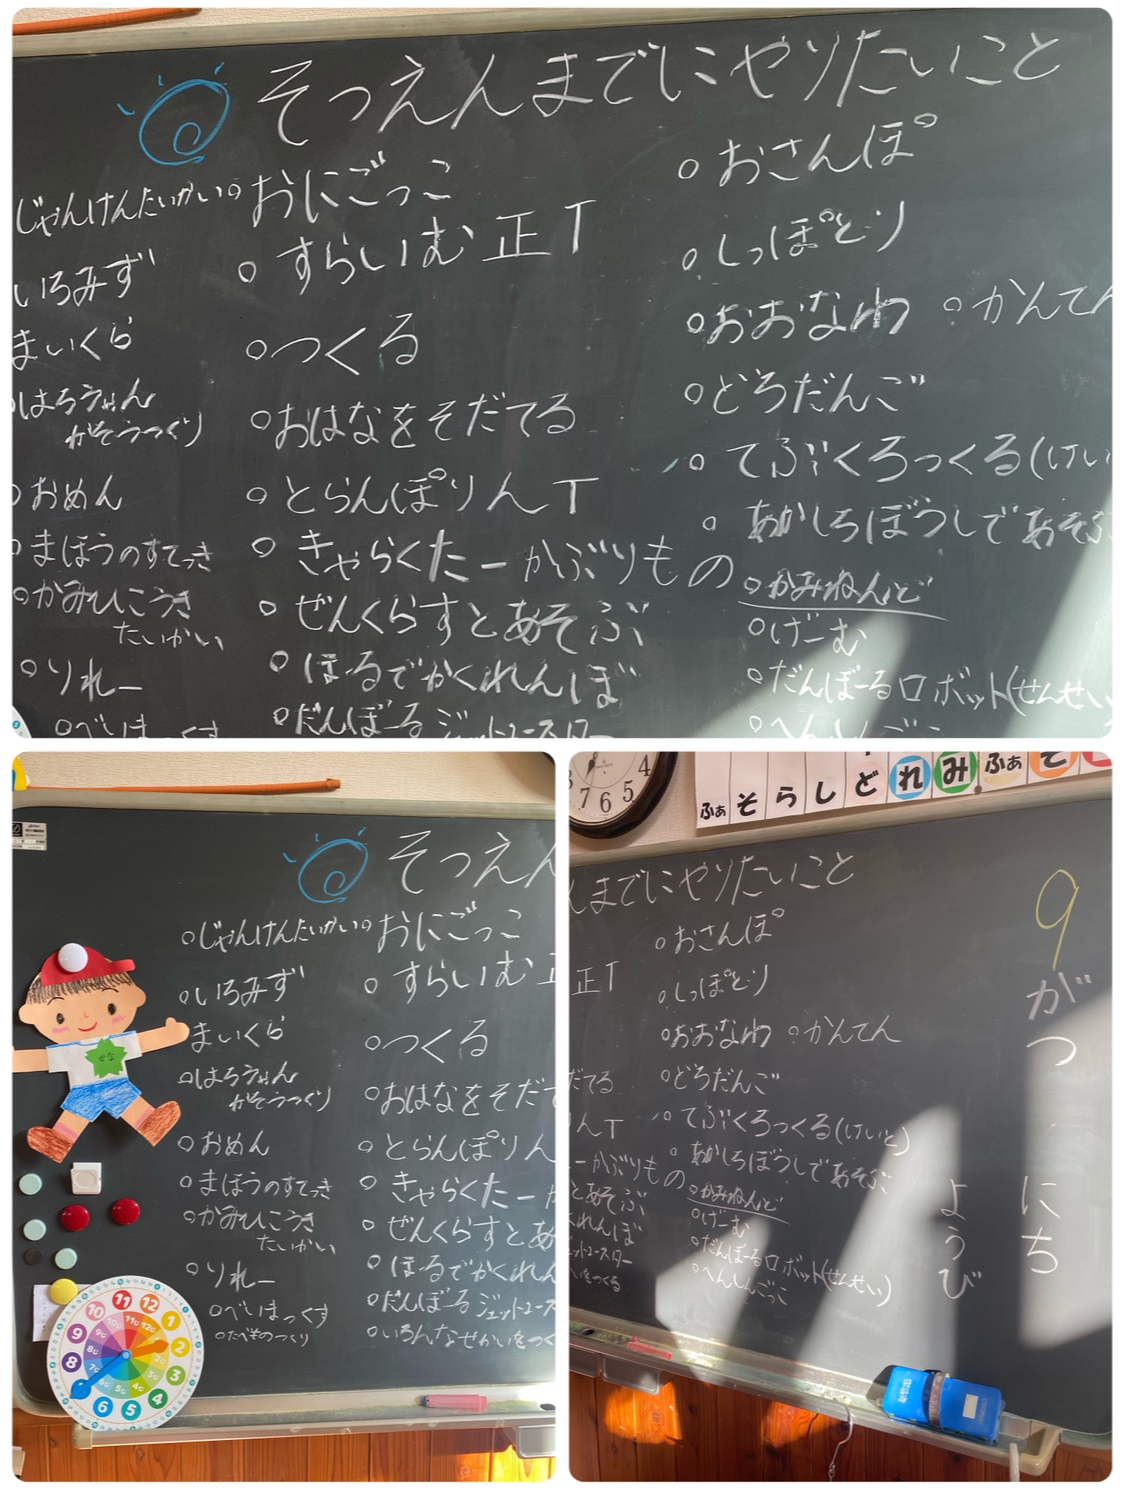 そつえんまでにやりたいこと
じゃんけんたいかい
いろみず
まいくら
はろうぃん
がそうつくり
おめん
まほうのすてっき
かみひこうき
たいかい
りれー
おにごっこ
すらいむ 正T
つくる
おはなをそだてる
とらんぽりん T
きゃらくたーかぶりもの
ぜんくらすとあそぶ
ほーるでかくれんぼ
だんぼーるジェットコースター
おさんぽ
しっぽとり
おおなわ かんてん
どろだんご
てぶくろつくる(けい
あかしろぼうしであそぶ
かみねんど
げーむ
だんぼーるロボット(せんせい
そつえん
じゃんけんたいかい
いろみず
まいくら
はろうぃん
がそうつくり
おめん
まほうのすてっき
かみひこうき
たいかい
りれー
べいまっくす
たべものつくり
おにごっこ
すらいむ
つくる
おはなをそだて
とらんぽりん
きゃらくたー
ぜんくらすとあ
ほーるでかくれん
だんぼーるジェットコース
いろんなせかいをつく
かな
11 12 1 2 3 4 5 6 7 8 9 10
4 5 6 7 8
ふぁ そ ら し ど れ み ふぁ そ
んまでにやりたいこと
正T
おさんぽ
しっぽとり
おおなわ かんてん
どろだんご
てぶくろつくる(けいと)
あかしろぼうしであそぶ
かみねんど
げーむ
だんぼーるロボット(せんせい)
へんしんごっこ
てる
んT
ーかぶりもの
とあそぶ
くれんぼ
ェットコースター
いをつくる
9がつ にち
ようび